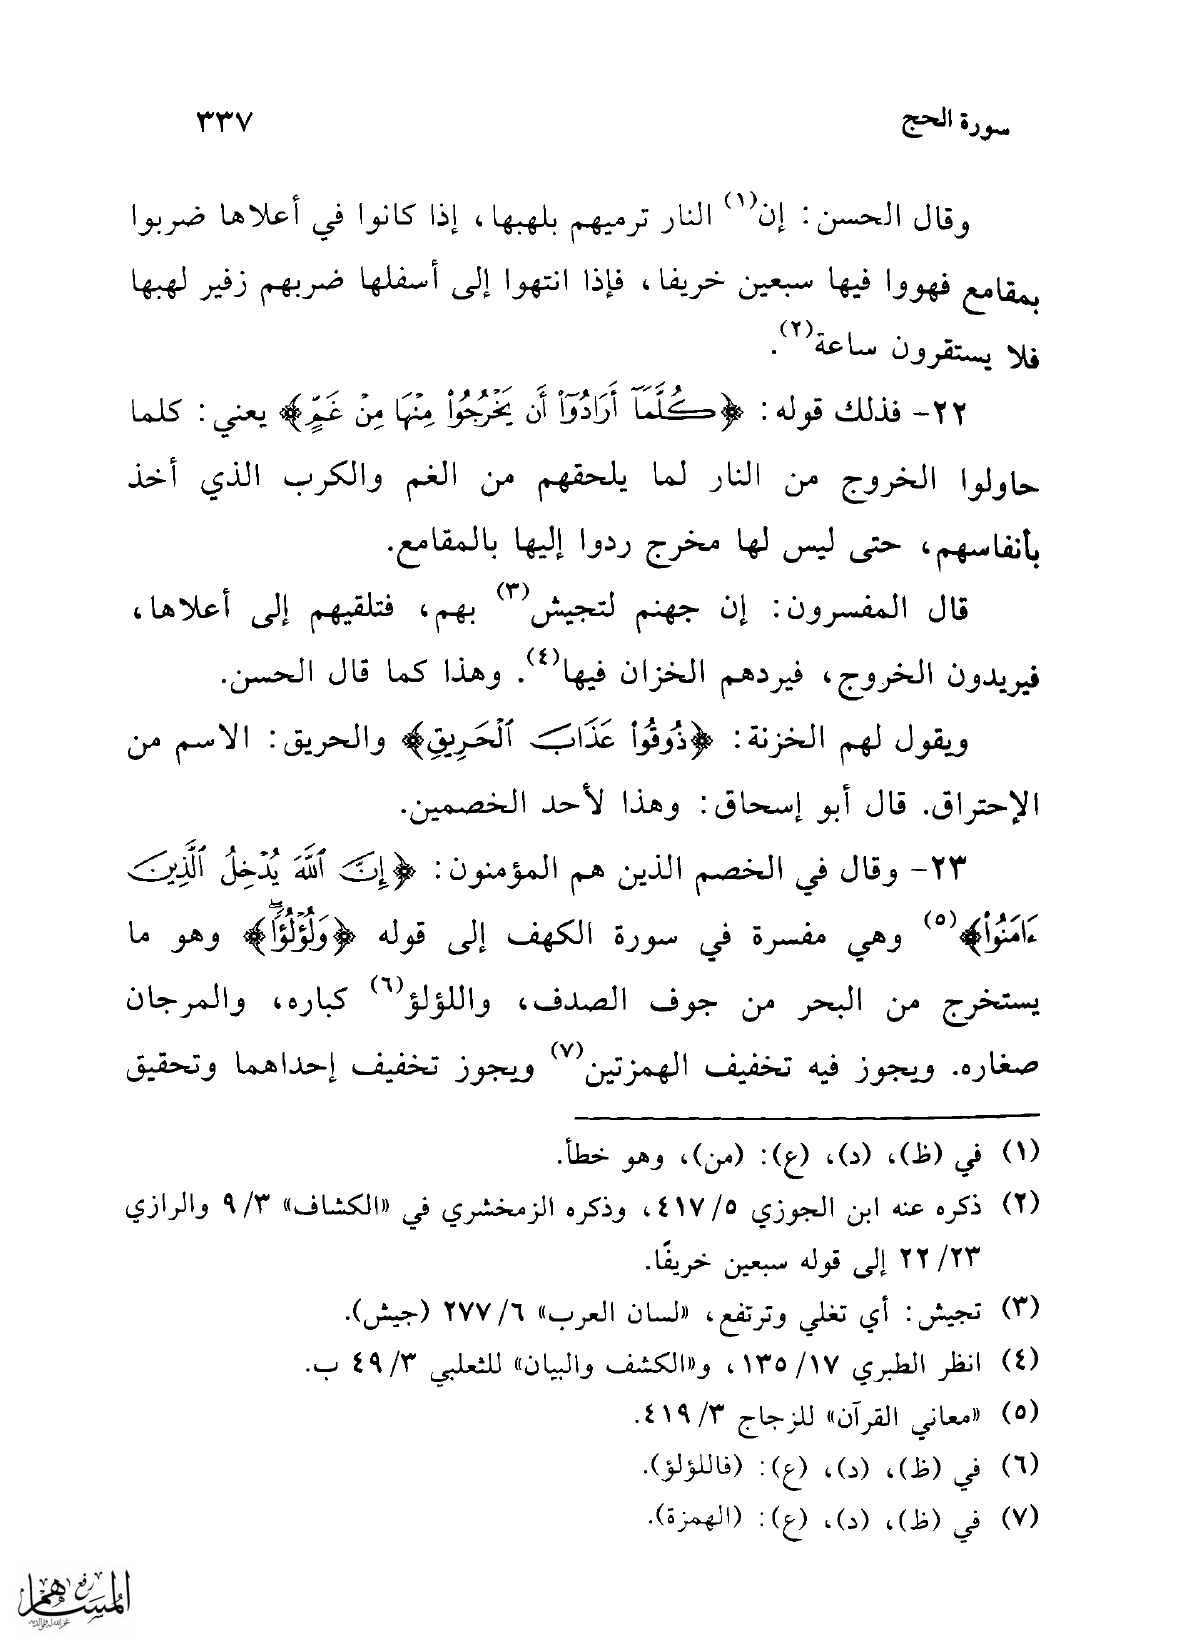 سورة الحج
٣٣٧
وقال الحسن: إن(١) النار ترميهم بلهبها، إذا كانوا في أعلاها ضربوا
بمقامع فهووا فيها سبعين خريفا، فإذا انتهوا إلى أسفلها ضربهم زفير لهبها
فلا يستقرون ساعة(٢).
٢٢- فذلك قوله: ﴿كُلَّمَآ أَرَادُوٓاْ أَن يَخۡرُجُواْ مِنۡهَا مِنۡ غَمٍّ﴾ يعني: كلما
حاولوا الخروج من النار لما يلحقهم من الغم والكرب الذي أخذ
بأنفاسهم، حتى ليس لها مخرج ردوا إليها بالمقامع.
قال المفسرون: إن جهنم لتجيش(٣) بهم، فتلقيهم إلى أعلاها،
فيريدون الخروج، فيردهم الخزان فيها(٤). وهذا كما قال الحسن.
ويقول لهم الخزنة: ﴿ذُوقُواْ عَذَابَ ٱلۡحَرِيقِ﴾ والحريق: الاسم من
الإحتراق. قال أبو إسحاق: وهذا لأحد الخصمين.
٢٣- وقال في الخصم الذين هم المؤمنون: ﴿إِنَّ ٱللَّهَ يُدۡخِلُ ٱلَّذِينَ
ءَامَنُواْ﴾(٥) وهي مفسرة في سورة الكهف إلى قوله ﴿وَلُؤۡلُؤٗاۖ﴾ وهو ما
يستخرج من البحر من جوف الصدف، واللؤلؤ(٦) كباره، والمرجان
صغاره. ويجوز فيه تخفيف الهمزتين(٧) ويجوز تخفيف إحداهما وتحقيق
(١) في (ظ)، (د)، (ع): (من)، وهو خطأ.
(٢) ذكره عنه ابن الجوزي ٥/ ٤١٧، وذكره الزمخشري في «الكشاف» ٣/ ٩ والرازي
٢٣/ ٢٢ إلى قوله سبعين خريفًا.
(٣) تجيش: أي تغلي وترتفع، «لسان العرب» ٦/ ٢٧٧ (جيش).
(٤) انظر الطبري ١٧/ ١٣٥، و«الكشف والبيان» للثعلبي ٣/ ٤٩ ب.
(٥) «معاني القرآن» للزجاج ٣/ ٤١٩.
(٦) في (ظ)، (د)، (ع): (فاللؤلؤ).
(٧) في (ظ)، (د)، (ع): (الهمزة).